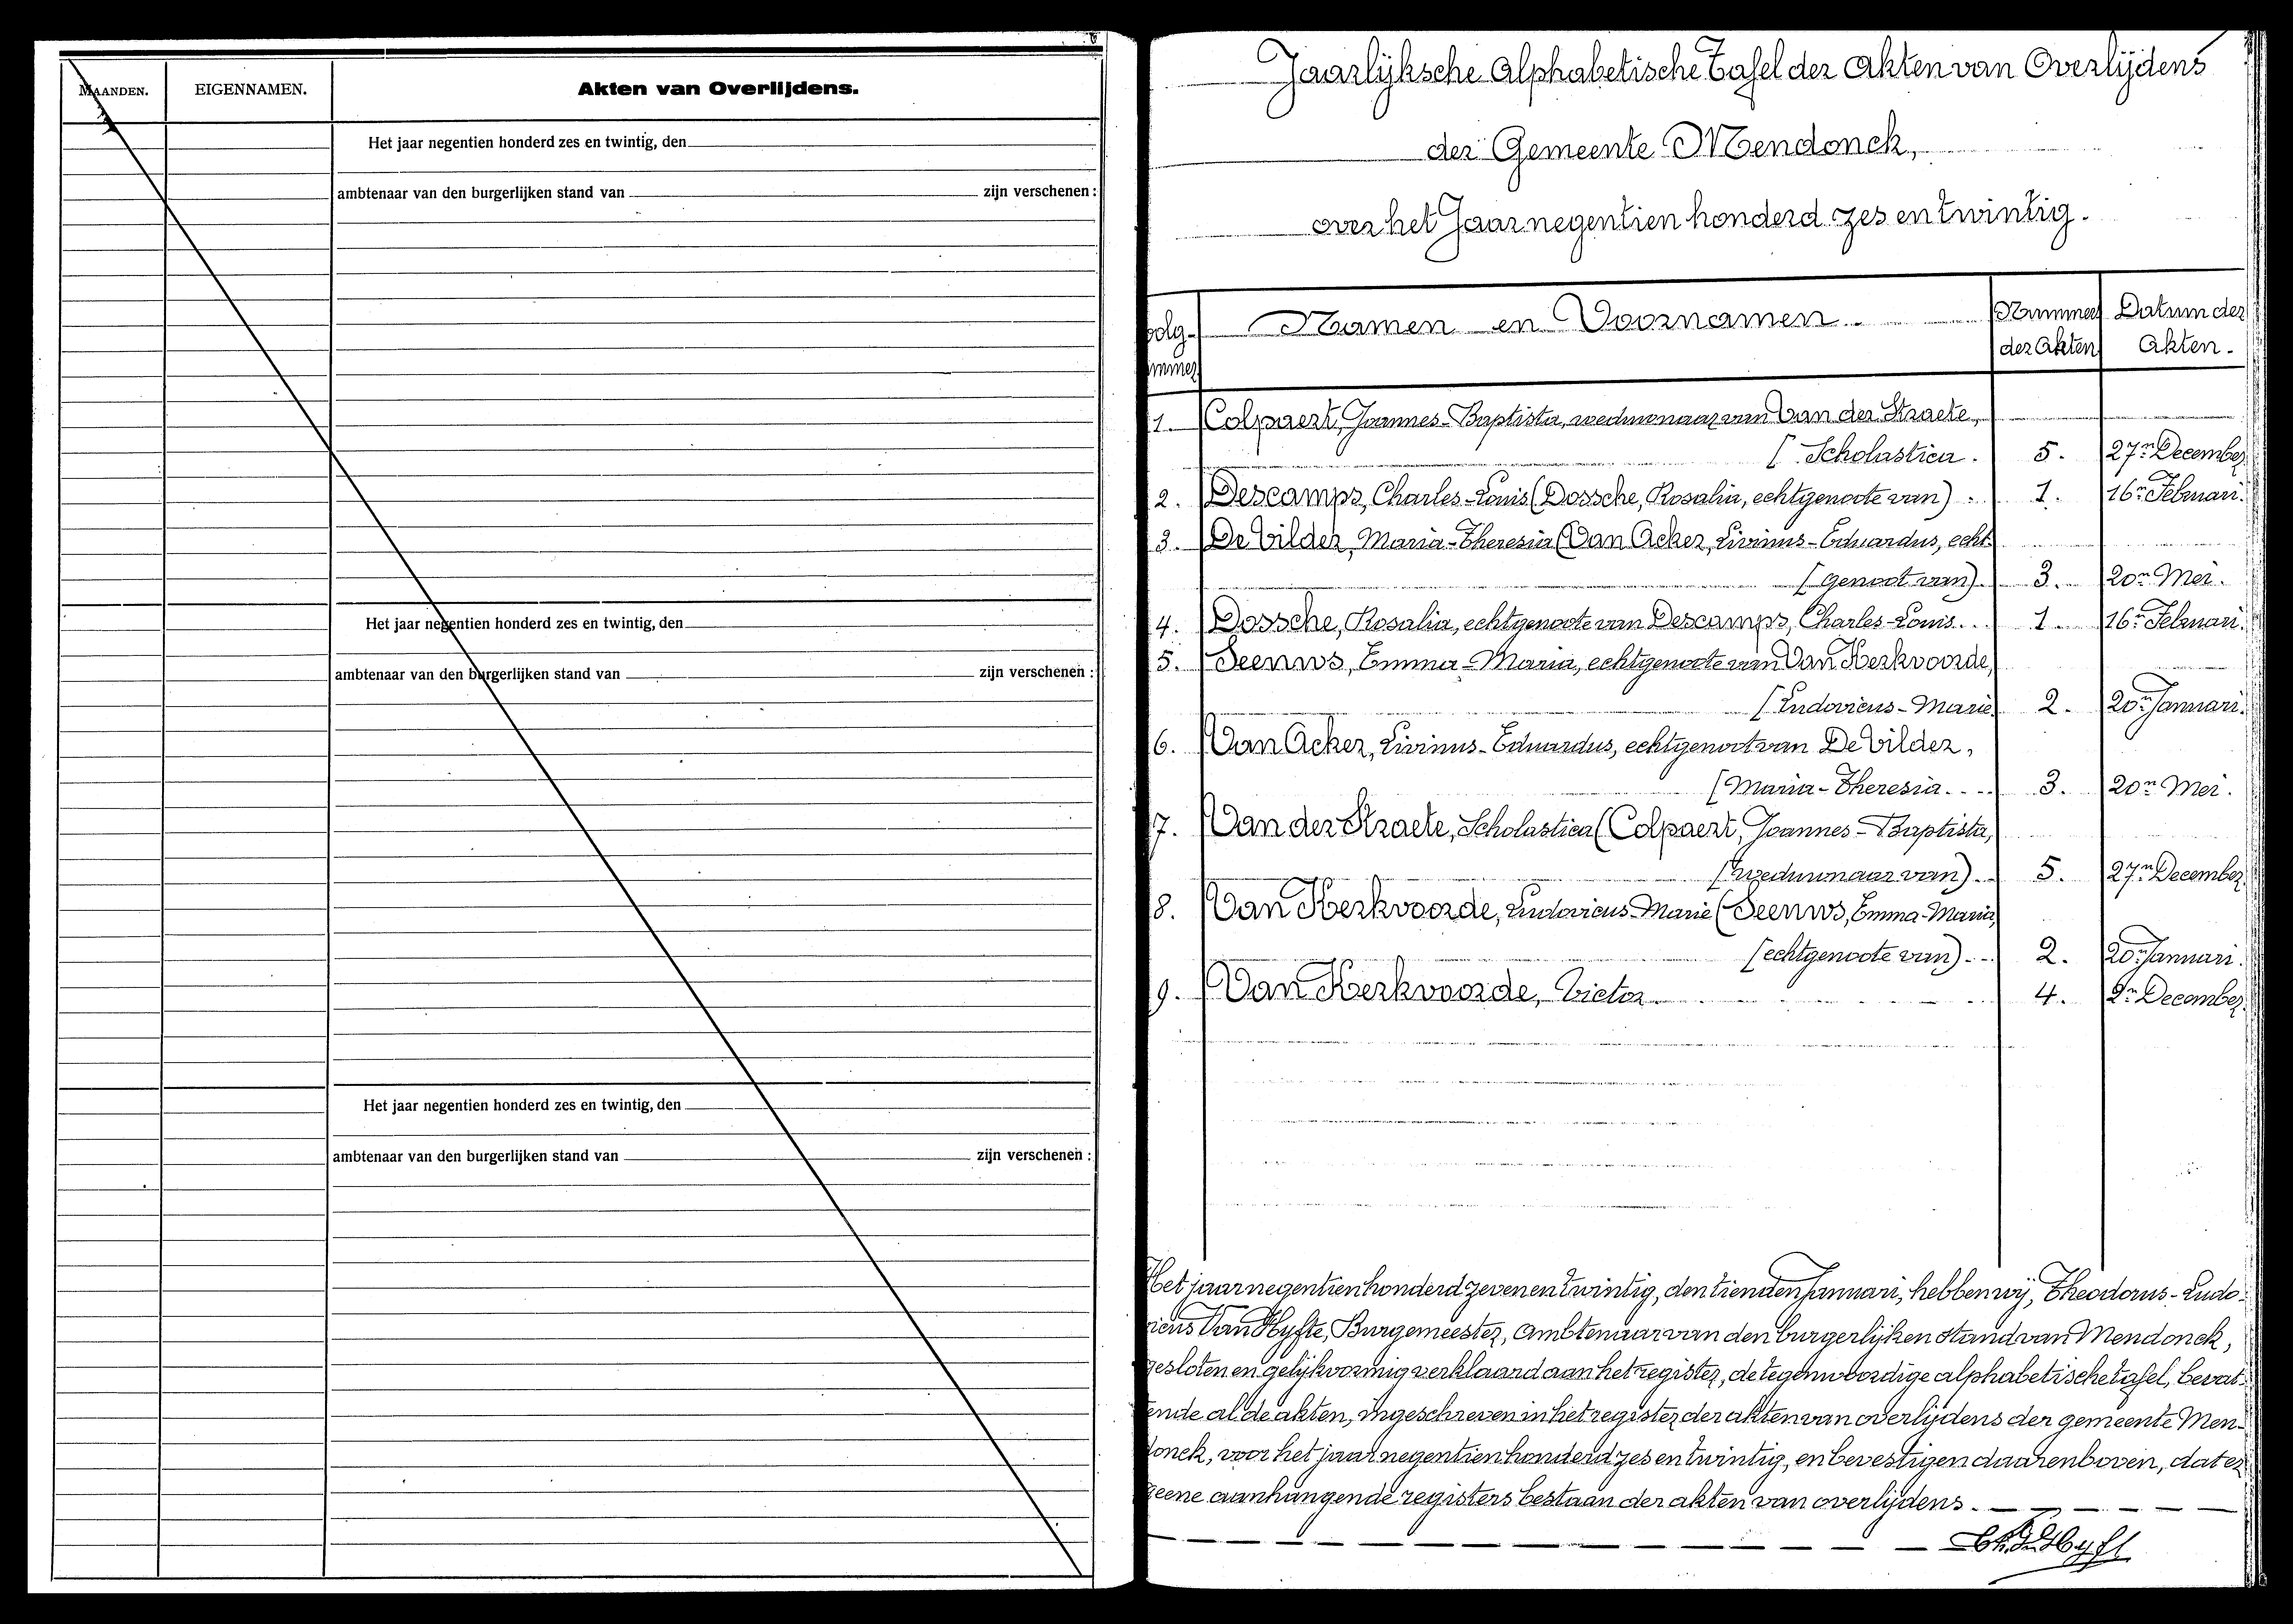 MAANDEN. EIGENNAMEN. Akten van Overlijdens.
Het jaar negentien honderd zes en twintig, den
ambtenaar van den burgerlijken stand van zijn verschenen :
Het jaar negentien honderd zes en twintig, den
ambtenaar van den burgerlijken stand van zijn verschenen :
Het jaar negentien honderd zes en twintig, den
ambtenaar van den burgerlijken stand van zijn verschenen :
Jaarlijksche Alphabetische Tafel der Akten van Overlijdens
der Gemeente Mendonck,
over het Jaar negentien honderd zes en twintig.
volg- Namen en Voornamen. Nummer Datum der
ummer der Akten Akten.
1. Colpaert, Joannes-Baptista, weduwnaar van Van der Straete,
[Scholastica. 5. 27n December
2. Descamps, Charles-Louis (Dossche, Rosalia, echtgenoote van) 1. 16n Februari.
3. De Vilder, Maria-Theresia (Van Acker, Livinus-Eduardus, echt
[genoot van). 3. 20n Mei.
4. Dossche, Rosalia, echtgenoote van Descamps, Charles-Louis. 1. 16n Februari.
5. Seenws, Emma-Maria, echtgenoote van Van Kerkvoorde,
[Ludovicus-Marie. 2. 20n Januari.
6. Van Acker, Livinus-Eduardus, echtgenoot van De Vilder,
[Maria-Theresia. 3. 20n Mei.
7. Van der Straete, Scholastica (Colpaert, Joannes-Baptista,
[weduwnaar van). 5. 27n December
8. Van Kerkvoorde, Ludovicus-Marie (Seenws, Emma-Maria,
[echtgenoote van). 2. 20n Januari.
9. Van Kerkvoorde, Victor. 4. 9n December.
Het jaar negentien honderd zeven en twintig, den tienden Januari, hebben wij, Theodorus-Ludo-
vicus Van Hyfte, Burgemeester, Ambtenaar van den burgerlijken stand van Mendonck,
gesloten en gelijkvormig verklaard aan het register, de tegenwoordige alphabetische tafel, bevat-
tende al de akten, ingeschreven in het register der akten van overlijdens der gemeente Men-
donck, voor het jaar negentien honderd zes en twintig, en bevestigen daarenboven, dat er
geene aanhangende registers bestaan der akten van overlijdens.